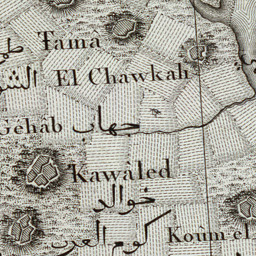 Ŧamâ
El Chawkah
Gehâb جهاب
Kawâled
خوالد
كوم العرب
Koûm el